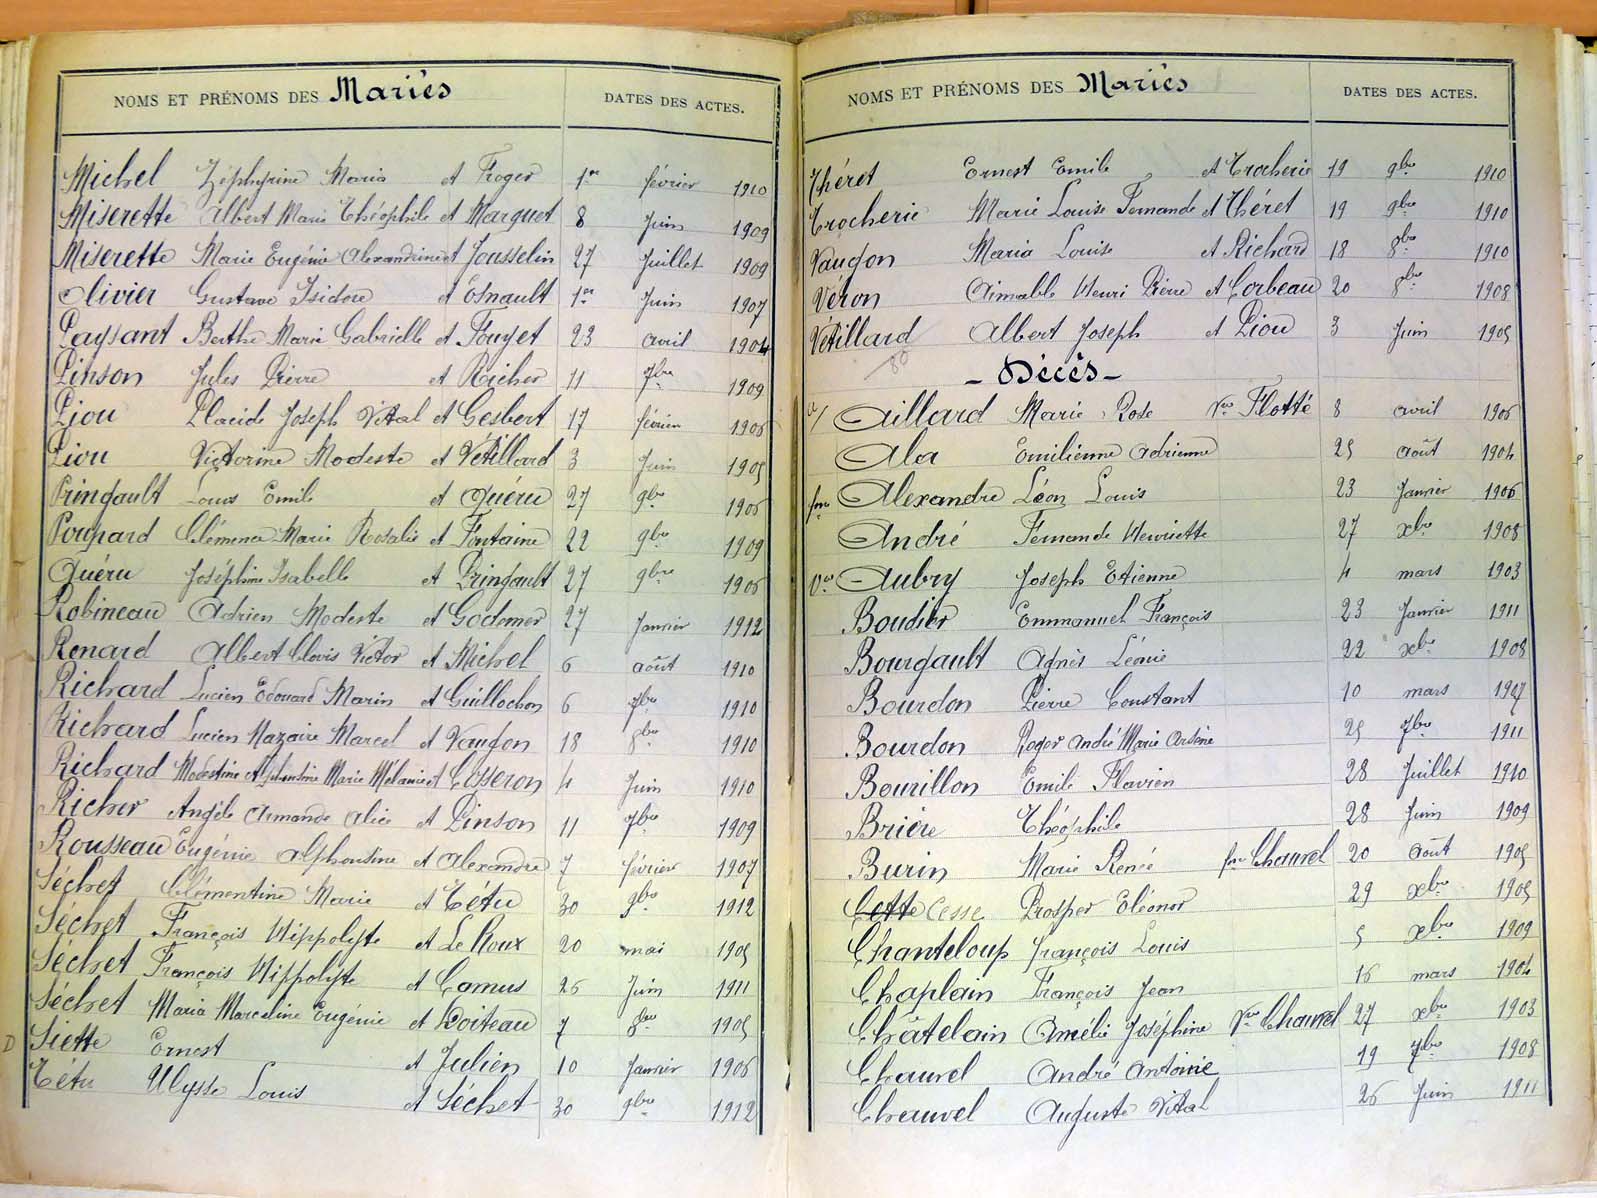 NOMS ET PRÉNOMS DES Mariés DATES DES ACTES.
Michel Zéphyrine Maria et Froger 1er février 1910
Miserette Albert Marie Théophile et Marguet 8 Juin 1909
Miserette Marie Eugénie Alexandrine et Jousselin 27 Juillet 1909
Olivier Gustave Isidore et Esnault 1er Juin 1907
Paysant Berthe Marie Gabrielle et Fouyet 23 avril 1904
Pinson Jules Pierre et Richer 11 7bre 1909
Piou Placide Joseph Vital et Gesbert 17 février 1906
Piou Victorine Modeste et Vétillard 3 Juin 1905
Pringault Louis Emile et Quéru 27 9bre 1906
Poupard Clémence Marie Rosalie et Fontaine 22 9bre 1909
Quéru Joséphine Isabelle et Pringault 27 9bre 1906
Robineau Adrien Modeste et Godemer 27 Janvier 1912
Renard Albert Clovis Victor et Michel 6 août 1910
Richard Lucien Edouard Marin et Guillochon 6 7bre 1910
Richard Lucien Nazaire Marcel et Vaugon 18 8bre 1910
Richard Modestine Alphonsine Marie Mélanie et Cosseron 4 Juin 1910
Richer Angèle Armande Alice et Pinson 11 7bre 1909
Rousseau Eugénie Alphonsine et Alexandre 7 février 1907
Séchet Clémentine Marie et Tétu 30 9bre 1912
Séchet François Hippolyte et Le Roux 20 mai 1905
Séchet François Hippolyte et Camus 26 Juin 1911
Séchet Maria Marceline Eugénie et Poiteau 7 8bre 1905
D Siette Ernest et Julien 10 Janvier 1906
Tétu Ulysse Louis et Séchet 30 9bre 1912
NOMS ET PRÉNOMS DES Mariés DATES DES ACTES.
Théret Ernest Emile et Trocherie 19 9bre 1910
Trocherie Marie Louise Fernande et Théret 19 9bre 1910
Vaugon Maria Louise et Richard 18 8bre 1910
Véron Aimable Henri Pierre et Corbeau 20 8bre 1908
Vétillard Albert Joseph et Piou 3 Juin 1905
80
- Décès -
Aillard Marie Rose Vve Flotté 8 avril 1906
Ala Emilienne Adrienne 25 août 1904
fme Alexandre Léon Louis 23 Janvier 1906
André Fernande Henriette 27 xbre 1908
Vve Aubry Joseph Etienne 4 mars 1903
Boudier Emmanuel François 23 Janvier 1911
Bourgault Agnès Léonie 22 xbre 1908
Bourdon Pierre Constant 10 mars 1907
Bourdon Roger André Marie Arsène 25 7bre 1911
Bourillon Emile Flavien 28 Juillet 1910
Brière Théophile 28 Juin 1909
Burin Marie Renée fme Chauvel 20 août 1905
Cette Cesse Prosper Eléonor 29 xbre 1905
Chanteloup françois Louis 5 xbre 1909
Chaplain François Jean 16 mars 1904
Châtelain Amélie Joséphine Vve Chauvel 27 xbre 1903
Chauvel André Antoine 19 7bre 1908
Chauvel Auguste Vital 26 Juin 1911